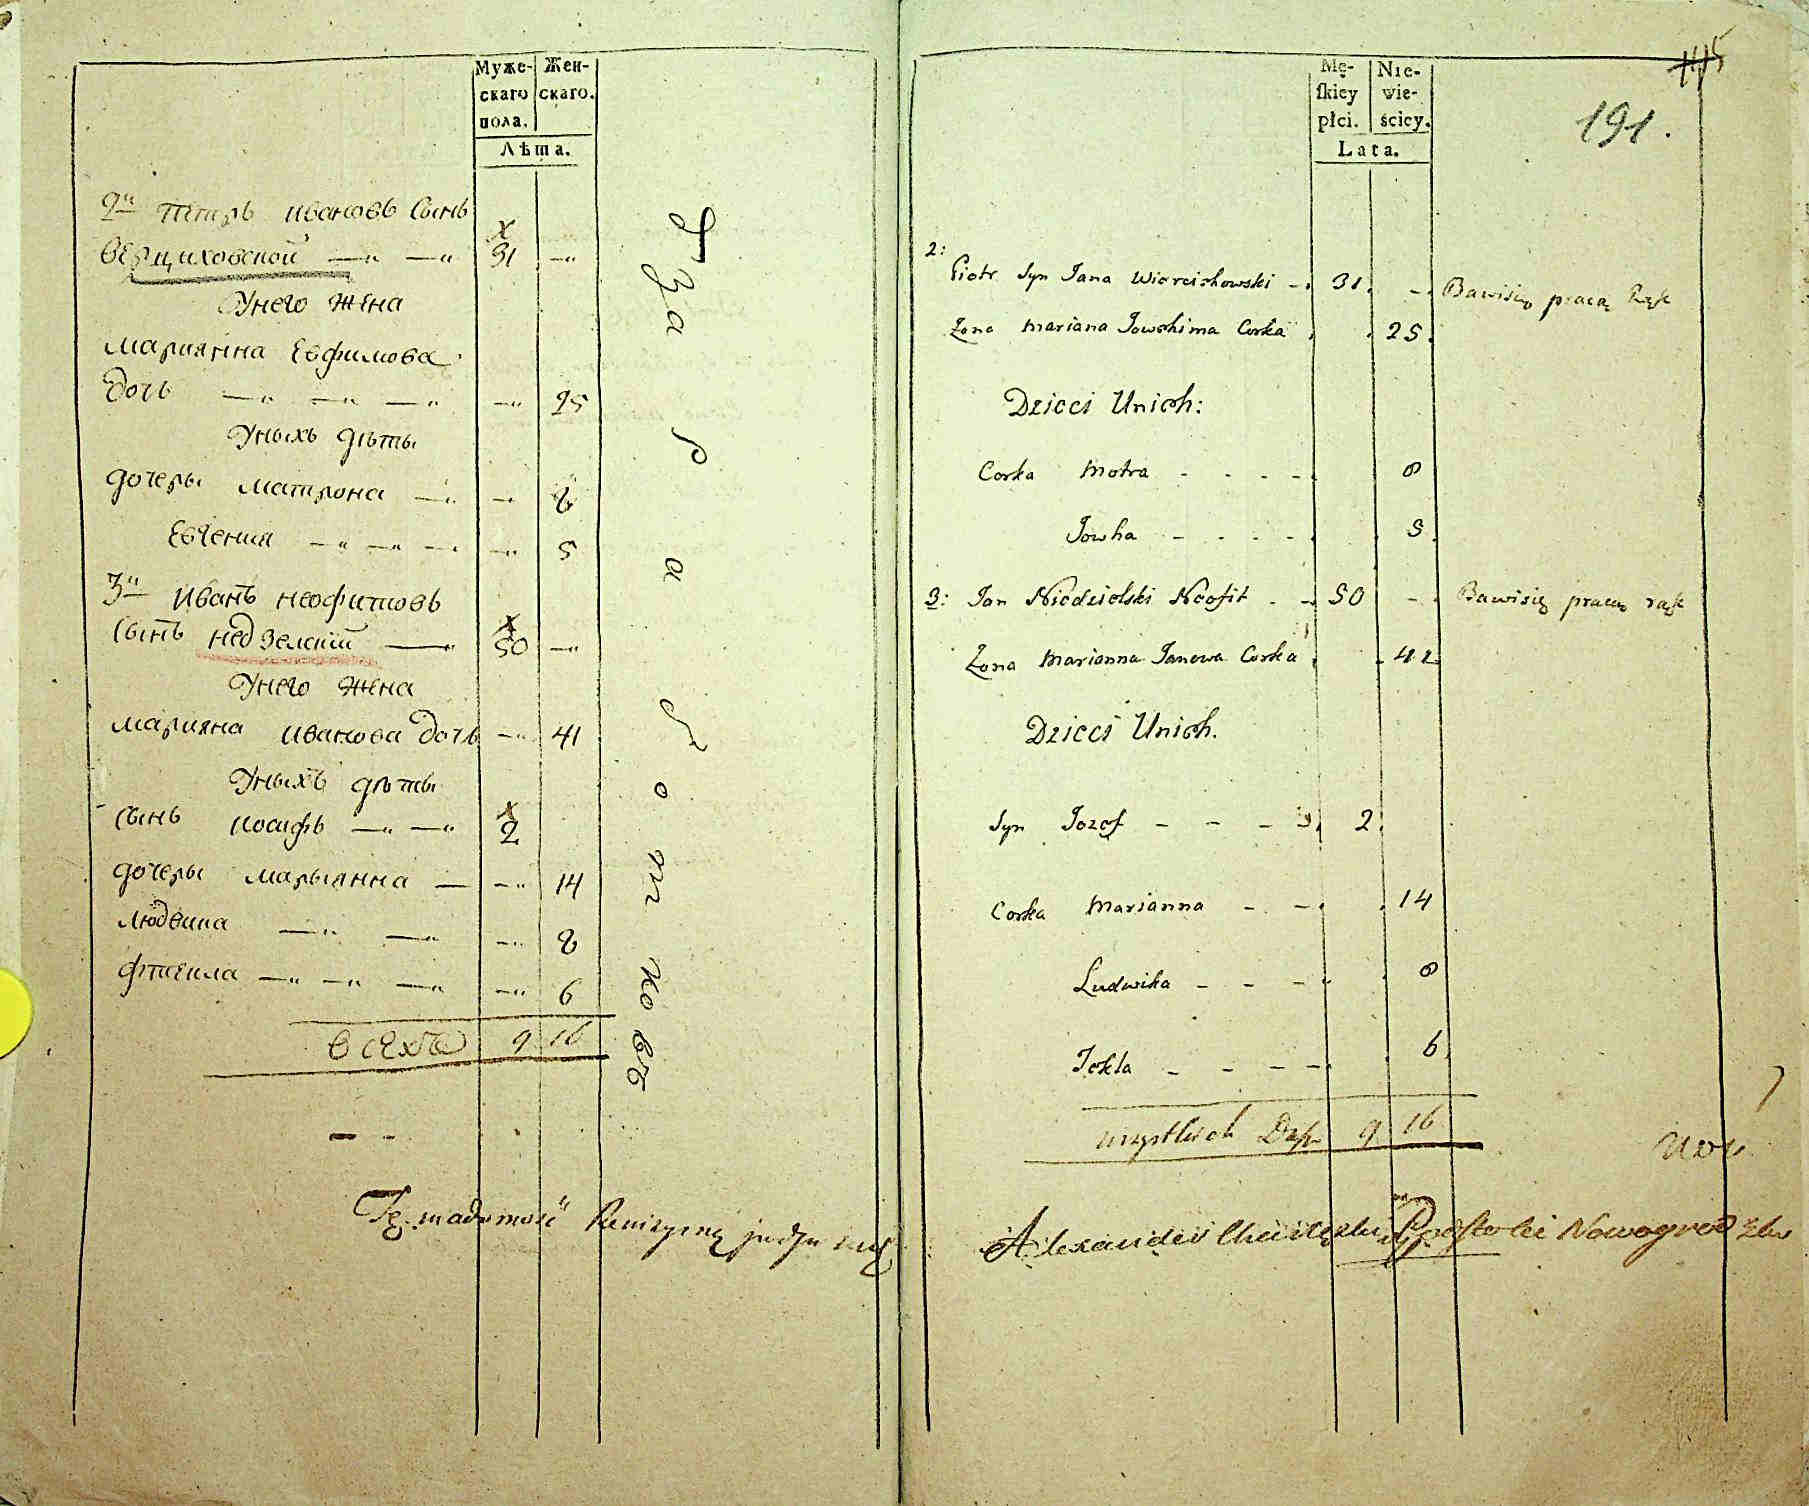 Муже- Жен-
скаго скаго.
пола.
Лѣта.
2й Петръ Ивановъ сынъ
Верциховской — — 31 —
Унего жена
Марианна Евфимова
дочь — — — — 25
Уныхъ дѣты
дочеры Матрона — — 8
Евгения — — — — 5
3й Иванъ Неофитовъ
сынъ Недзелский — 50 —
Унего жена
Марияна Иванова дочь — 41
Уныхъ дѣты
сынъ Иосифъ — — 2
дочеры Марыянна — — 14
Людвика — — — 8
Фтекла — — — — 6
всехъ 9 16
Заработковъ
Tę wiadomość
Mę- Nie-
ſkiey wie-
płci. ściey.
Lata.
115
191.
2:
Piotr Syn Jana Wiercichowski - 31. - Bawisię pracą Rąk
Zona Mariana Jowchima Corka 25.
Dzieci Unich:
Corka Motra - - - - 8
Jowha - - - - 5
3: Jan Niedzielski Neofit - - 50 - Bawisię pracą rąk
Zona Marianna Janowa Corka 41
Dzieci Unich.
Syn Jozef - - - 2.
Corka Marianna - - 14
Ludwika - - - 8
Tekla - - - - 6
wszystkich Dusz 9 16
Alexander